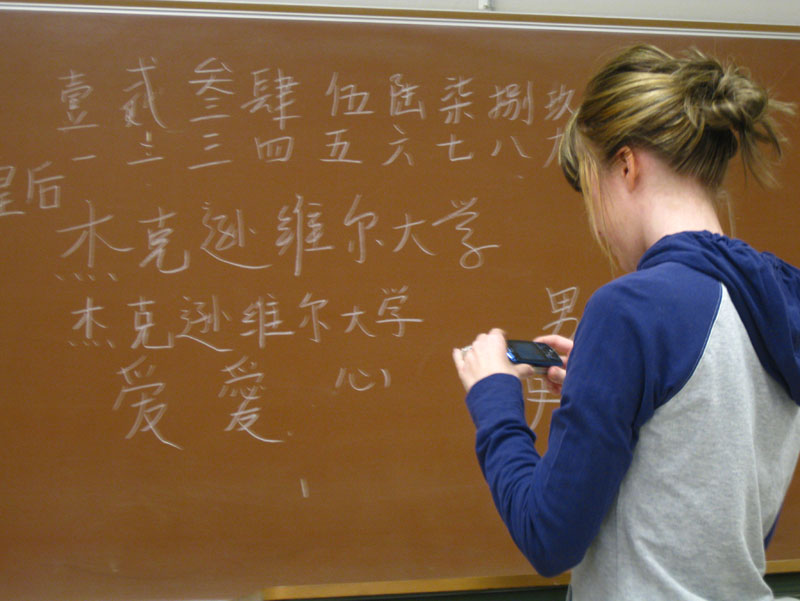 壹 贰 叁 肆 伍 陆 柒 捌 玖
一 二 三 四 五 六 七 八 九
皇后
杰克逊维尔大学
杰克逊维尔大学
男
爱 愛 心